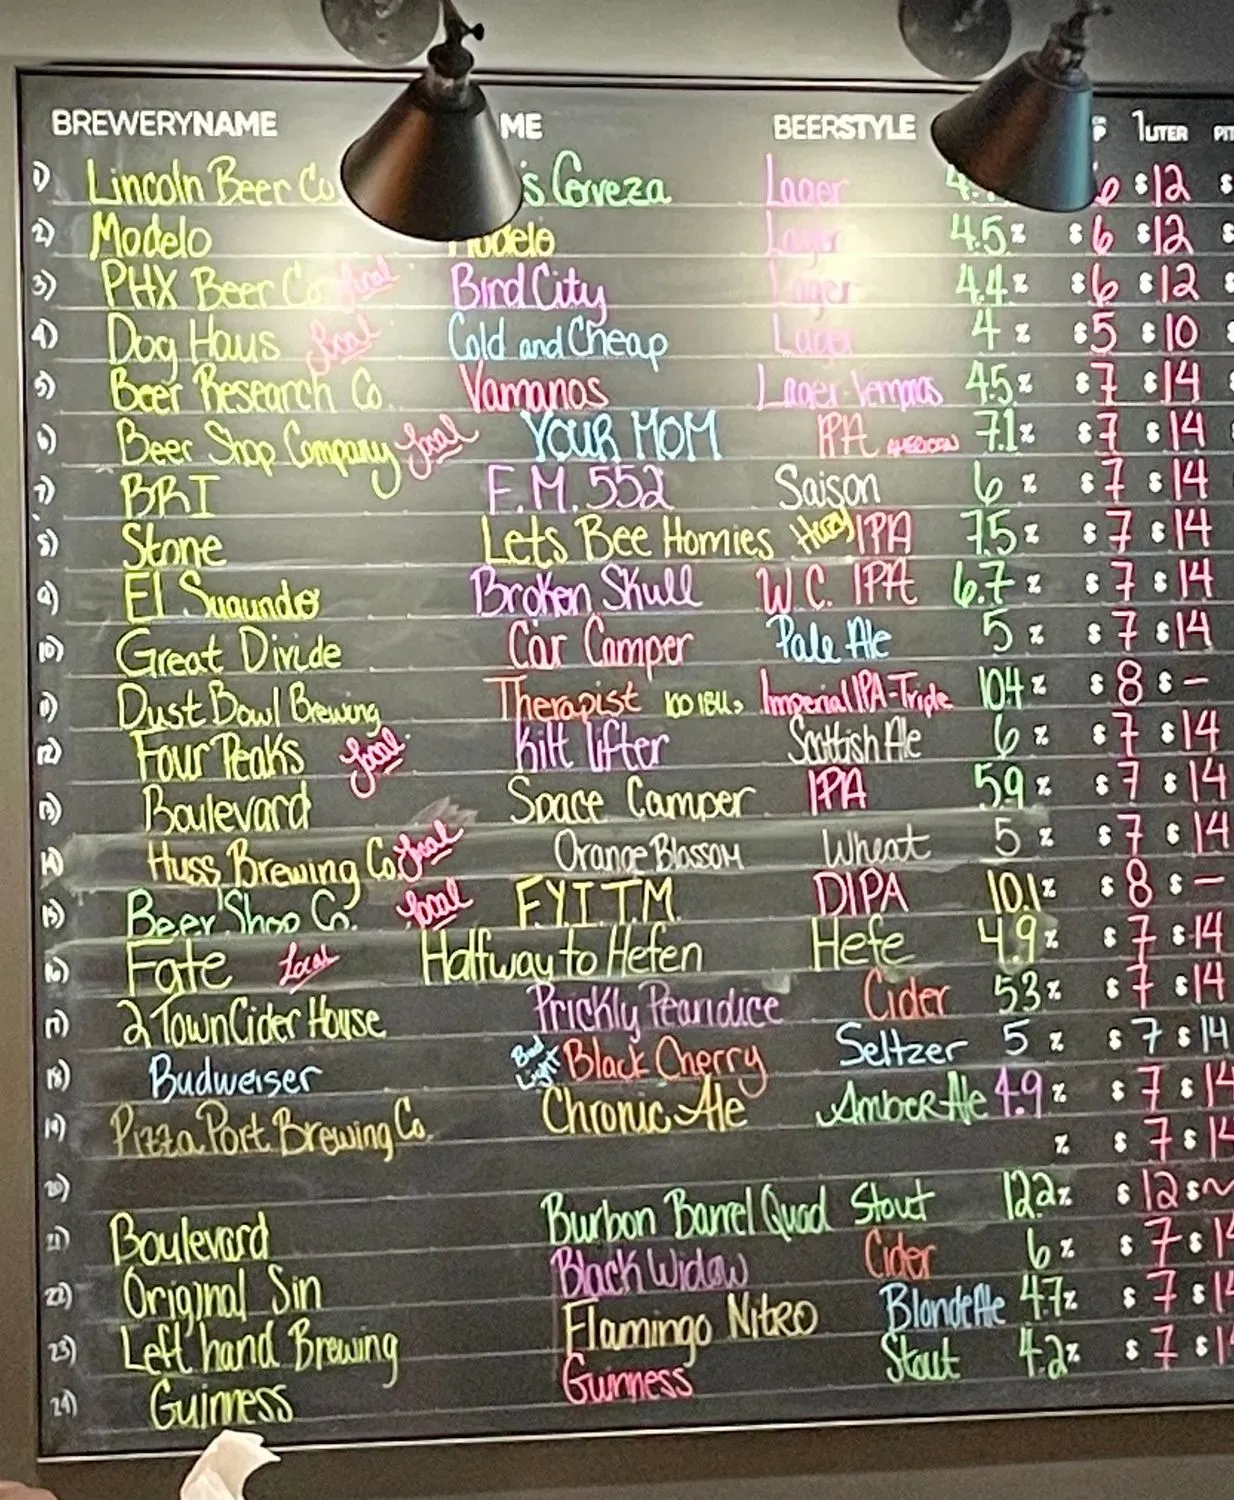 BREWERYNAME ME BEERSTYLE 1LITER PIT
1) Lincoln Beer Co. 's Cerveza Lager 4. 6 $12 $
2) Modelo Modelo Lager 4.5% $6 $12 $
3) PHX Beer Co Local Bird City Lager 4.4% $6 $12 $
4) Dog Haus Local Cold and Cheap Lager 4% $5 $10 $
5) Beer Research Co. Vamanos Lager 4.5% $7 $14
6) Beer Shop Company Local YOUR MOM IPA AMERICAN 7.1% $7 $14
7) BRI F.M. 552 Saison 6% $7 $14
8) Stone Lets Bee Homies Hazy IPA 7.5% $7 $14
9) El Broken Skull W.C. IPA 6.7% $7 $14
10) Great Divide Car Camper Pale Ale 5% $7 $14
11) Dust Bowl Brewing Therapist 100 IBUs Imperial IPA-Triple 10.4% $8 $-
12) Four Peaks Local Kilt lifter Scottish Ale 6% $7 $14
13) Boulevard Space Camper IPA 5.9% $7 $14
14) Huss Brewing Co. Local Orange Blossom Wheat 5% $7 $14
15) Beer Shop Co. Local F.Y.I.T.M. DIPA 10.1% $8 $-
16) Fate Local Halfway to Hefen Hefe 4.9% $7 $14
17) 2 Town Cider House Prickly Pearidice Cider 5.3% $7 $14
18) Budweiser Bud Light Black Cherry Seltzer 5% $7 $14
19) Pizza Port Brewing Co. Chronic Ale Amber Ale 4.9% $7 $14
20) % $7 $14
21) Boulevard Burbon Barrel Quad Stout 12.2% $12 $~
22) Original Sin Black Widow Cider 6% $7 $14
23) Left hand Brewing Flamingo Nitro Blonde Ale 4.7% $7 $14
24) Guinness Guinness Stout 4.2% $7 $1